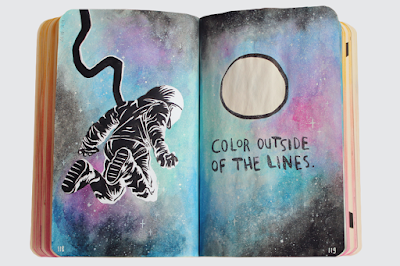 COLOR OUTSIDE
OF THE LINES.
118
119